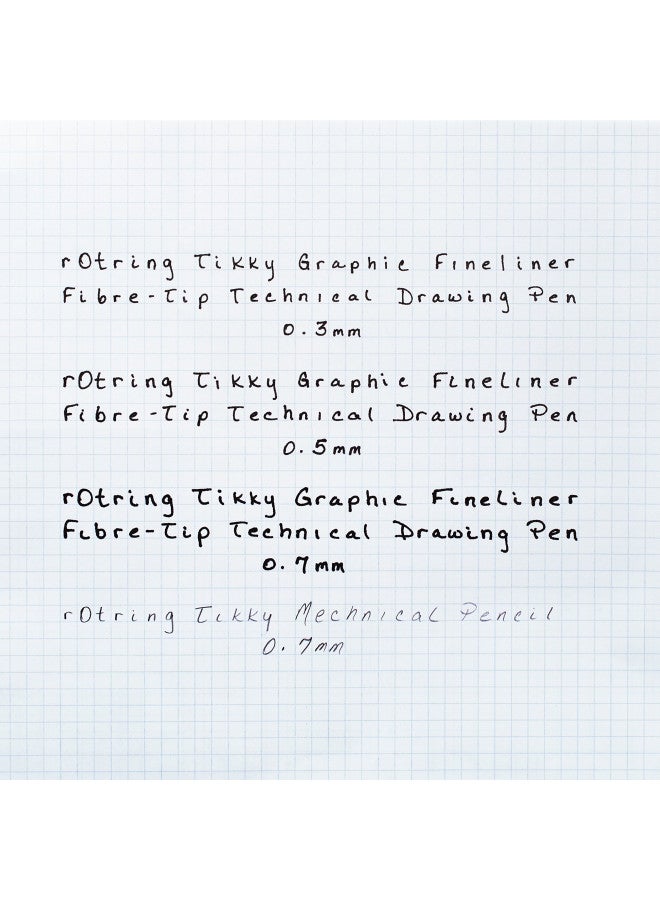 rOtring Tikky Graphic Fineliner
Fibre-Tip Technical Drawing Pen
0.3mm
rOtring Tikky Graphic Fineliner
Fibre-Tip Technical Drawing Pen
0.5mm
rOtring Tikky Graphic Fineliner
Fibre-Tip Technical Drawing Pen
0.7mm
rOtring Tikky Mechnical Pencil
0.7mm